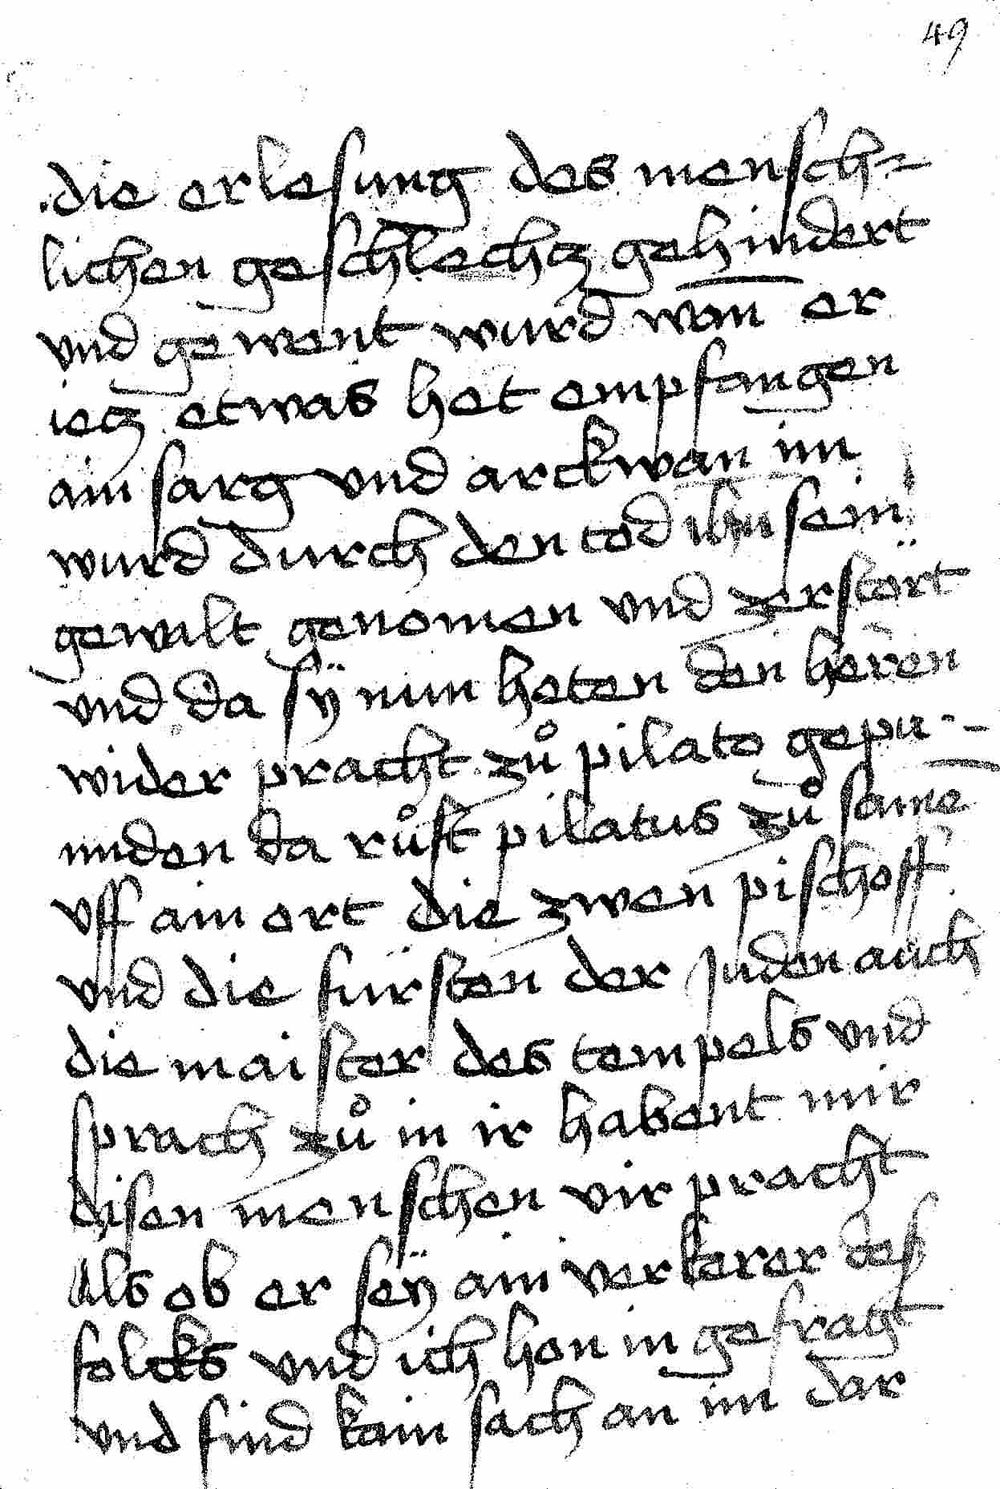 49
die erlesung des mensch=
lichen geschlechtz gehindert
vnd gewent wurd wan̄ er
ietz etwas het empfangen
ain sarg vnd arckwan im
wurd durch den tod ihu sein
gewalt genomen vnd zerstört
vnd da sÿ nun heten den heren
wider pracht zů pilato gepu-
nnden da růft pilatus zů same
vff ain ort die zwen pischoff
vnd die fürsten der Juden auch
die maister des tempels vnd
sprach zů in ir habent mir
disen menschen vir pracht
als ob er seÿ ain verkerer des
folcks vnd ich hon in gefragt
vnd find kain sach an im dar